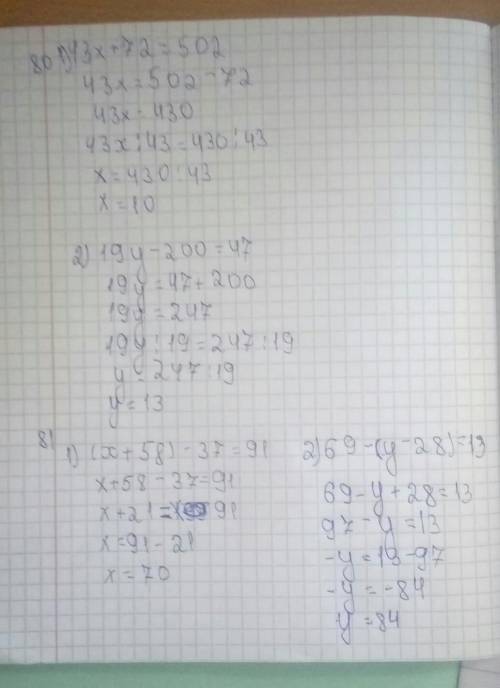 80 1) 43x+72=502
43x=502-72
43x=430
43x:43=430:43
x=430:43
x=10
2) 19y-200=47
19y=47+200
19y=247
19y:19=247:19
y=247:19
y=13
81 1) (x+58)-37=91
x+58-37=91
x+21=91
x=91-21
x=70
2) 69-(y-28)=13
69-y+28=13
97-y=13
-y=13-97
-y=-84
y=84